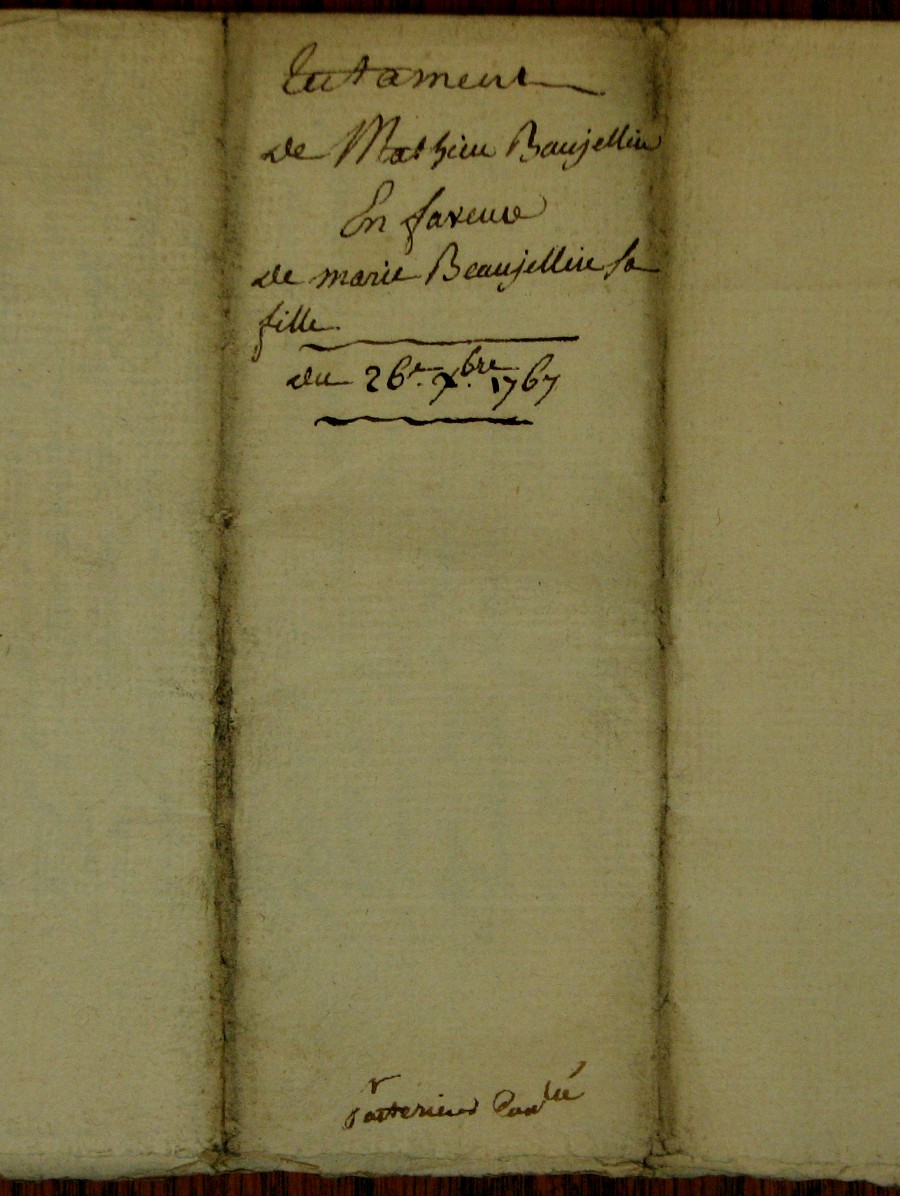 Testament
de Mathieu Baujellin
En faveur
de marie Beaujellin sa
fille
du 26e. Xbre. 1767